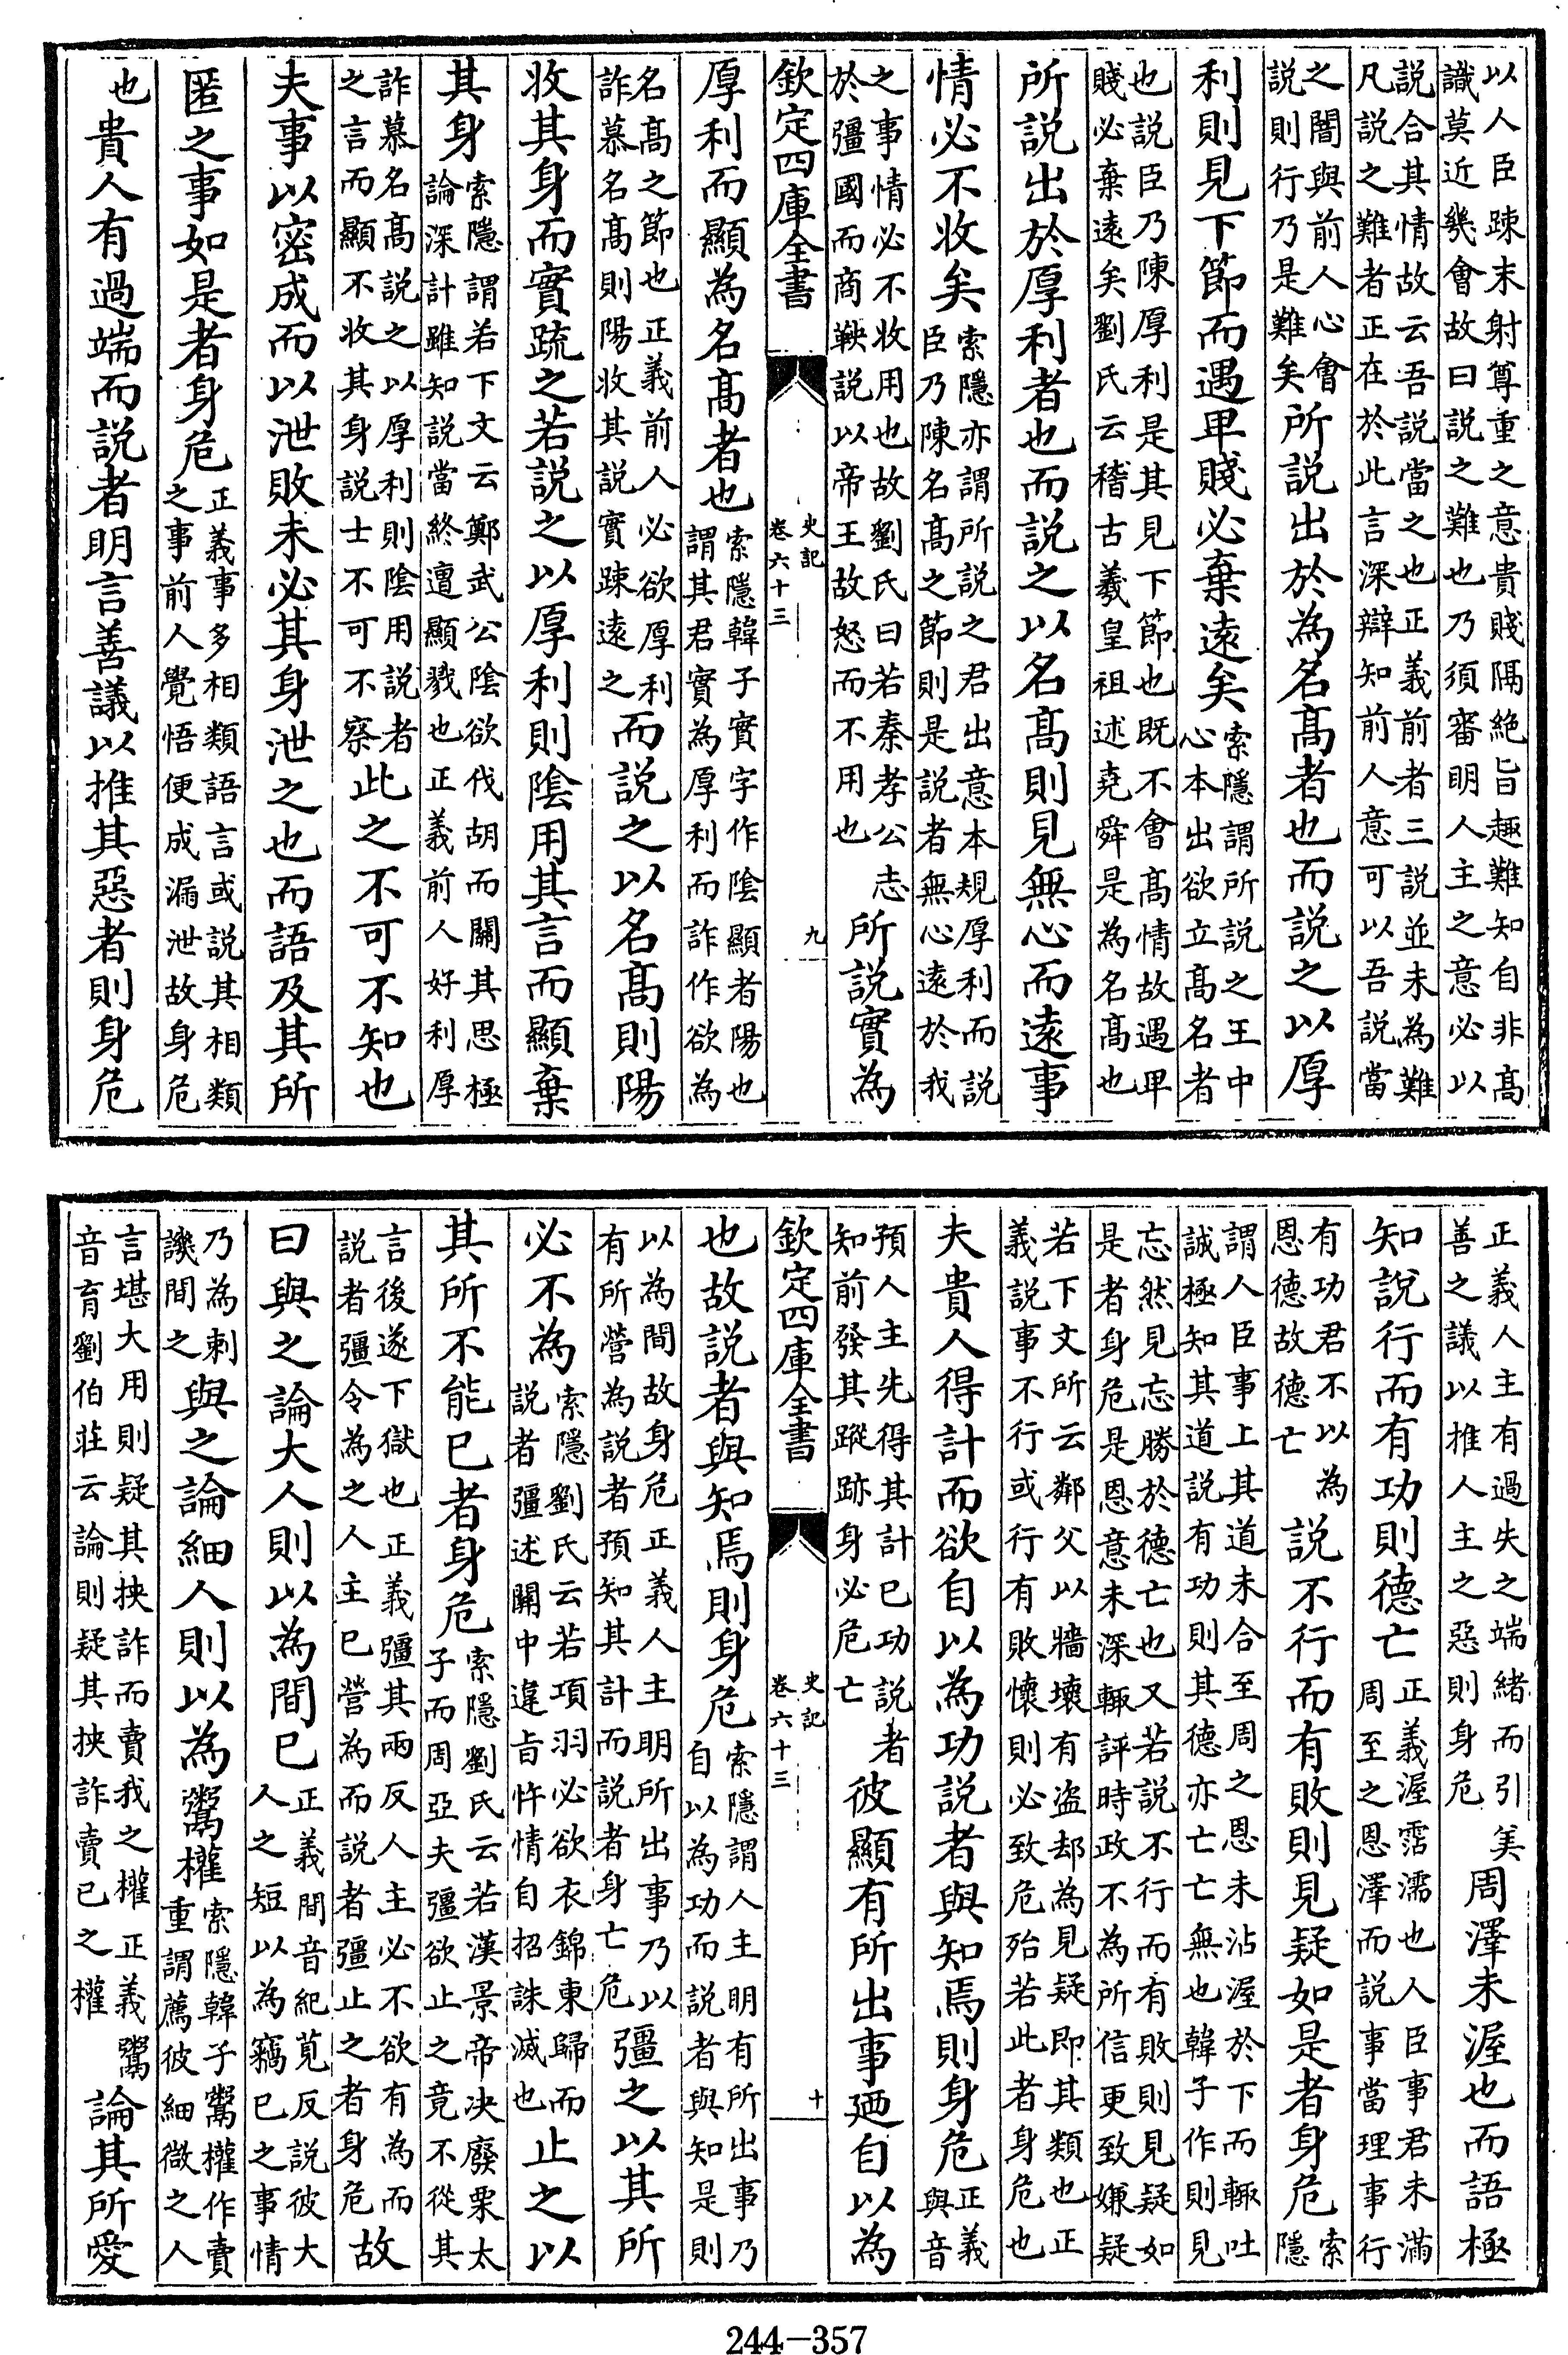 以人臣踈末射尊重之意貴賤隔絶旨趣難知自非髙
識莫近幾會故曰説之難也乃須審明人主之意必以
説合其情故云吾説當之也正義前者三説並未為難
凡説之難者正在於此言深辯知前人意可以吾説當
之闇與前人心會
説則行乃是難矣
所説出於為名髙者也而説之以厚
利則見下節而遇卑賤必棄遠矣
索隱謂所説之王中
心本出欲立髙名者
也説臣乃陳厚利是其見下節也既不會髙情故遇卑
賤必棄遠矣劉氏云稽古羲皇祖述堯舜是為名髙也
所説出於厚利者也而説之以名髙則見無心而遠事
情必不收矣
索隱亦謂所説之君出意本規厚利而説
臣乃陳名髙之節則是説者無心遠於我
之事情必不收用也故劉氏曰若秦孝公志
於彊國而商鞅説以帝王故怒而不用也
所説實為
欽定四庫全書
史記
卷六十三
九
厚利而顯為名髙者也
索隱韓子實字作隂顯者陽也
謂其君實為厚利而詐作欲為
名髙之節也正義前人必欲厚利
詐慕名髙則陽收其説實踈遠之
而説之以名髙則陽
收其身而實疏之若説之以厚利則隂用其言而顯棄
其身
索隱謂若下文云鄭武公隂欲伐胡而關其思極
論深計雖知説當終遭顯戮也正義前人好利厚
詐慕名髙説之以厚利則隂用説者
之言而顯不收其身説士不可不察
此之不可不知也
夫事以密成而以泄敗未必其身泄之也而語及其所
匿之事如是者身危
正義事多相類語言或説其相類
之事前人覺悟便成漏泄故身危
也貴人有過端而説者明言善議以推其惡者則身危
正義人主有過失之端緒而引美
善之議以推人主之惡則身危
周澤未渥也而語極
知説行而有功則德亡
正義渥霑濡也人臣事君未滿
周至之恩澤而説事當理事行
有功君不以為
恩德故德亡
説不行而有敗則見疑如是者身危
索
隱
謂人臣事上其道未合至周之恩未沾渥於下而輙吐
誠極知其道説有功則其德亦亡亡無也韓子作則見
忘然見忘勝於德亡也又若説不行而有敗則見疑如
是者身危是恩意未深輙評時政不為所信更致嫌疑
若下文所云鄰父以牆壞有盗却為見疑即其類也正
義説事不行或行有敗懐則必致危殆若此者身危也
夫貴人得計而欲自以為功説者與知焉則身危
正義
與音
預人主先得其計已功説者
知前發其蹤跡身必危亡
彼顯有所出事廼自以為
欽定四庫全書
史記
卷六十三
十
也故説者與知焉則身危
索隱謂人主明有所出事乃
自以為功而説者與知是則
以為間故身危正義人主明所出事乃以
有所營為説者預知其計而説者身亡危
彊之以其所
必不為
索隱劉氏云若項羽必欲衣錦東歸而
説者彊述關中違旨忤情自招誅滅也
止之以
其所不能已者身危
索隱劉氏云若漢景帝决廢栗太
子而周亞夫彊欲止之竟不從其
言後遂下獄也正義彊其兩反人主必不欲有為而
説者彊令為之人主已營為而説者彊止之者身危
故
曰與之論大人則以為間已
正義間音紀莧反説彼大
人之短以為竊已之事情
乃為刺
譏間之
與之論細人則以為鬻權
索隱韓子鬻權作賣
重謂薦彼細微之人
言堪大用則疑其挾詐而賣我之權正義鬻
音育劉伯莊云論則疑其挾詐賣已之權
論其所愛
244-357